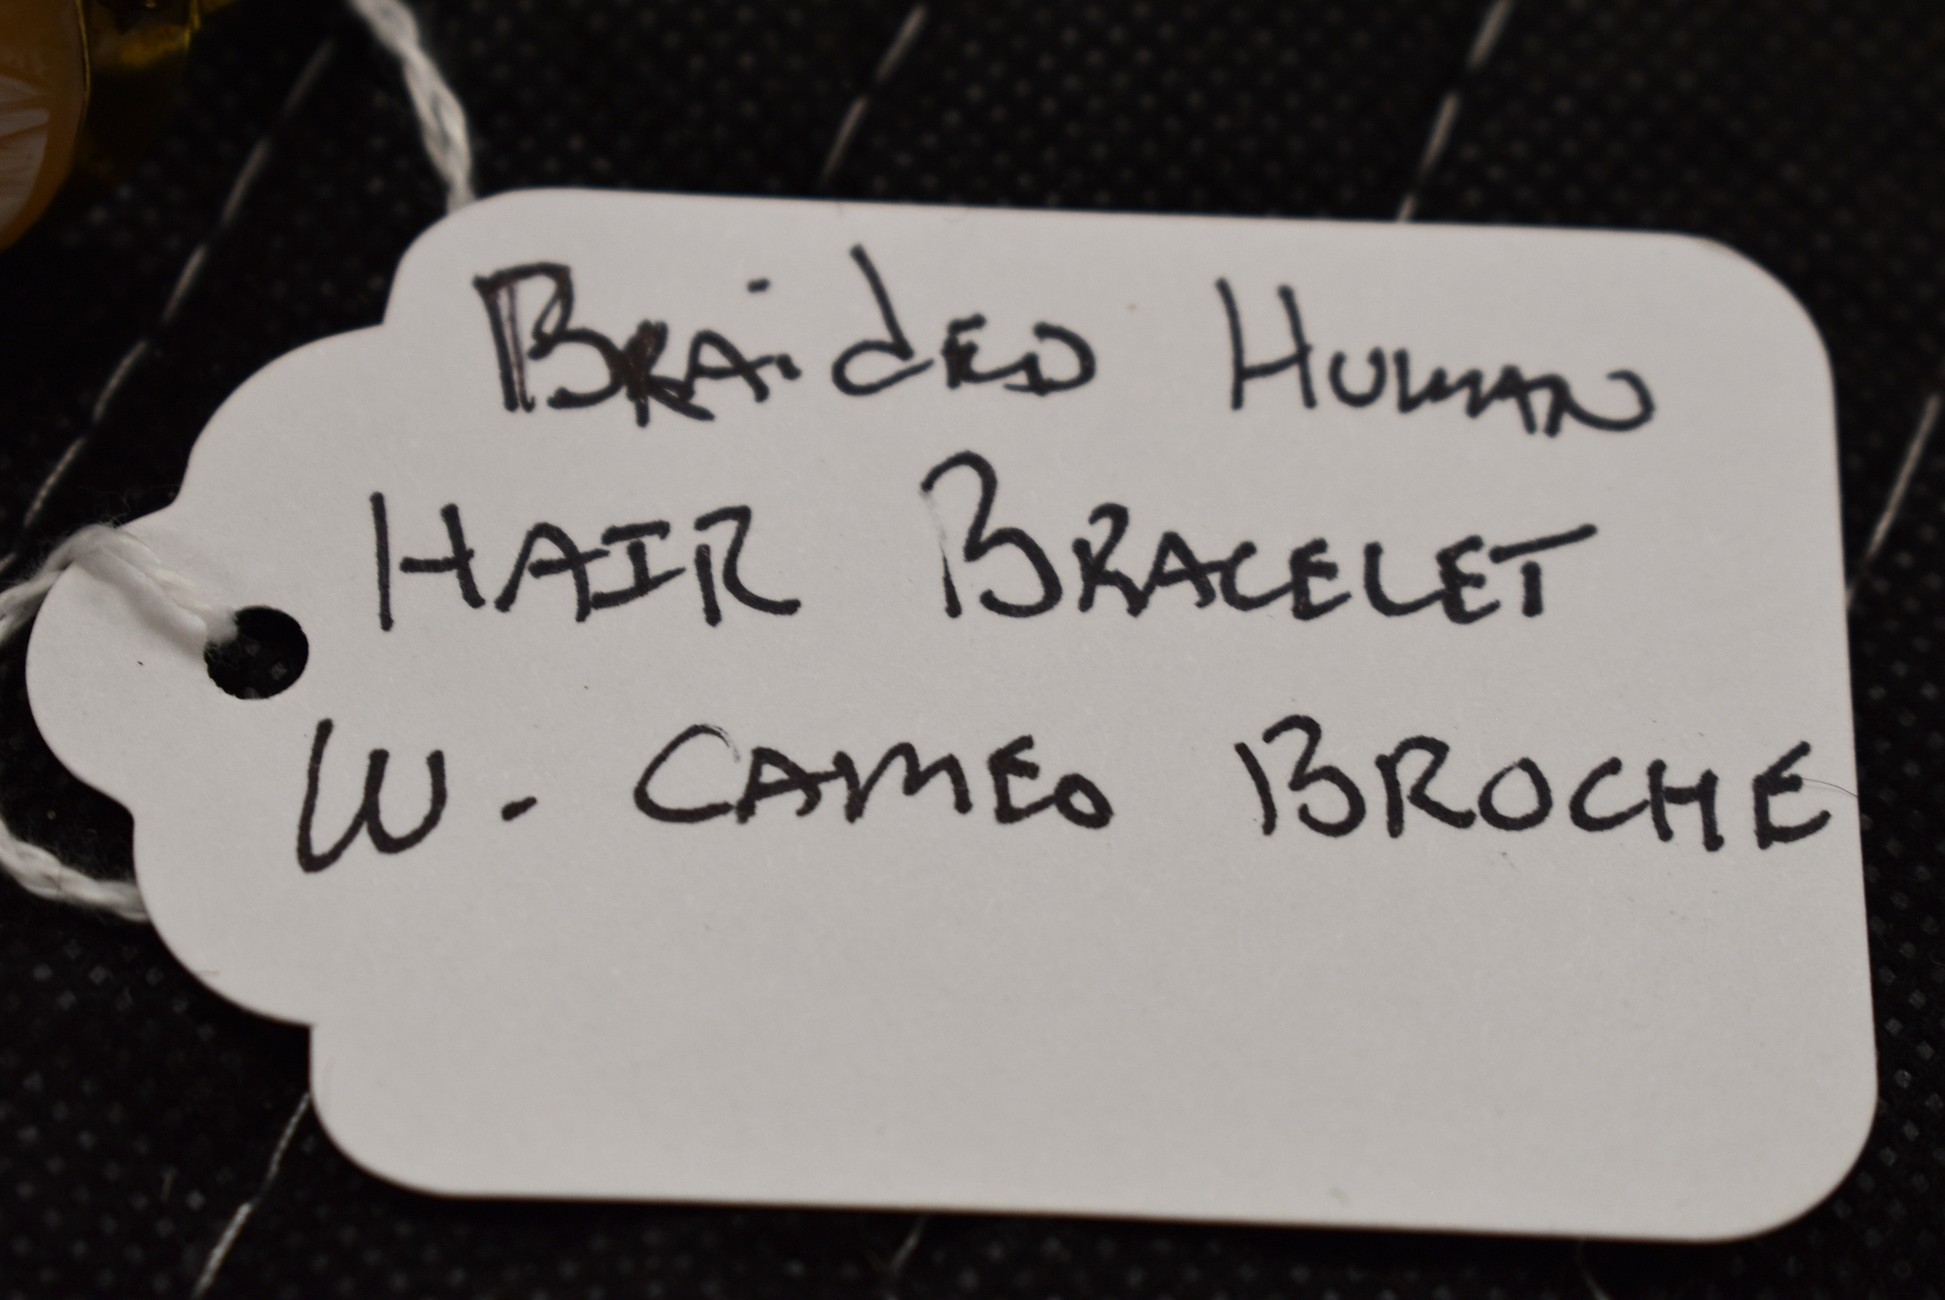 Braided Human
Hair Bracelet
W. Cameo Broche